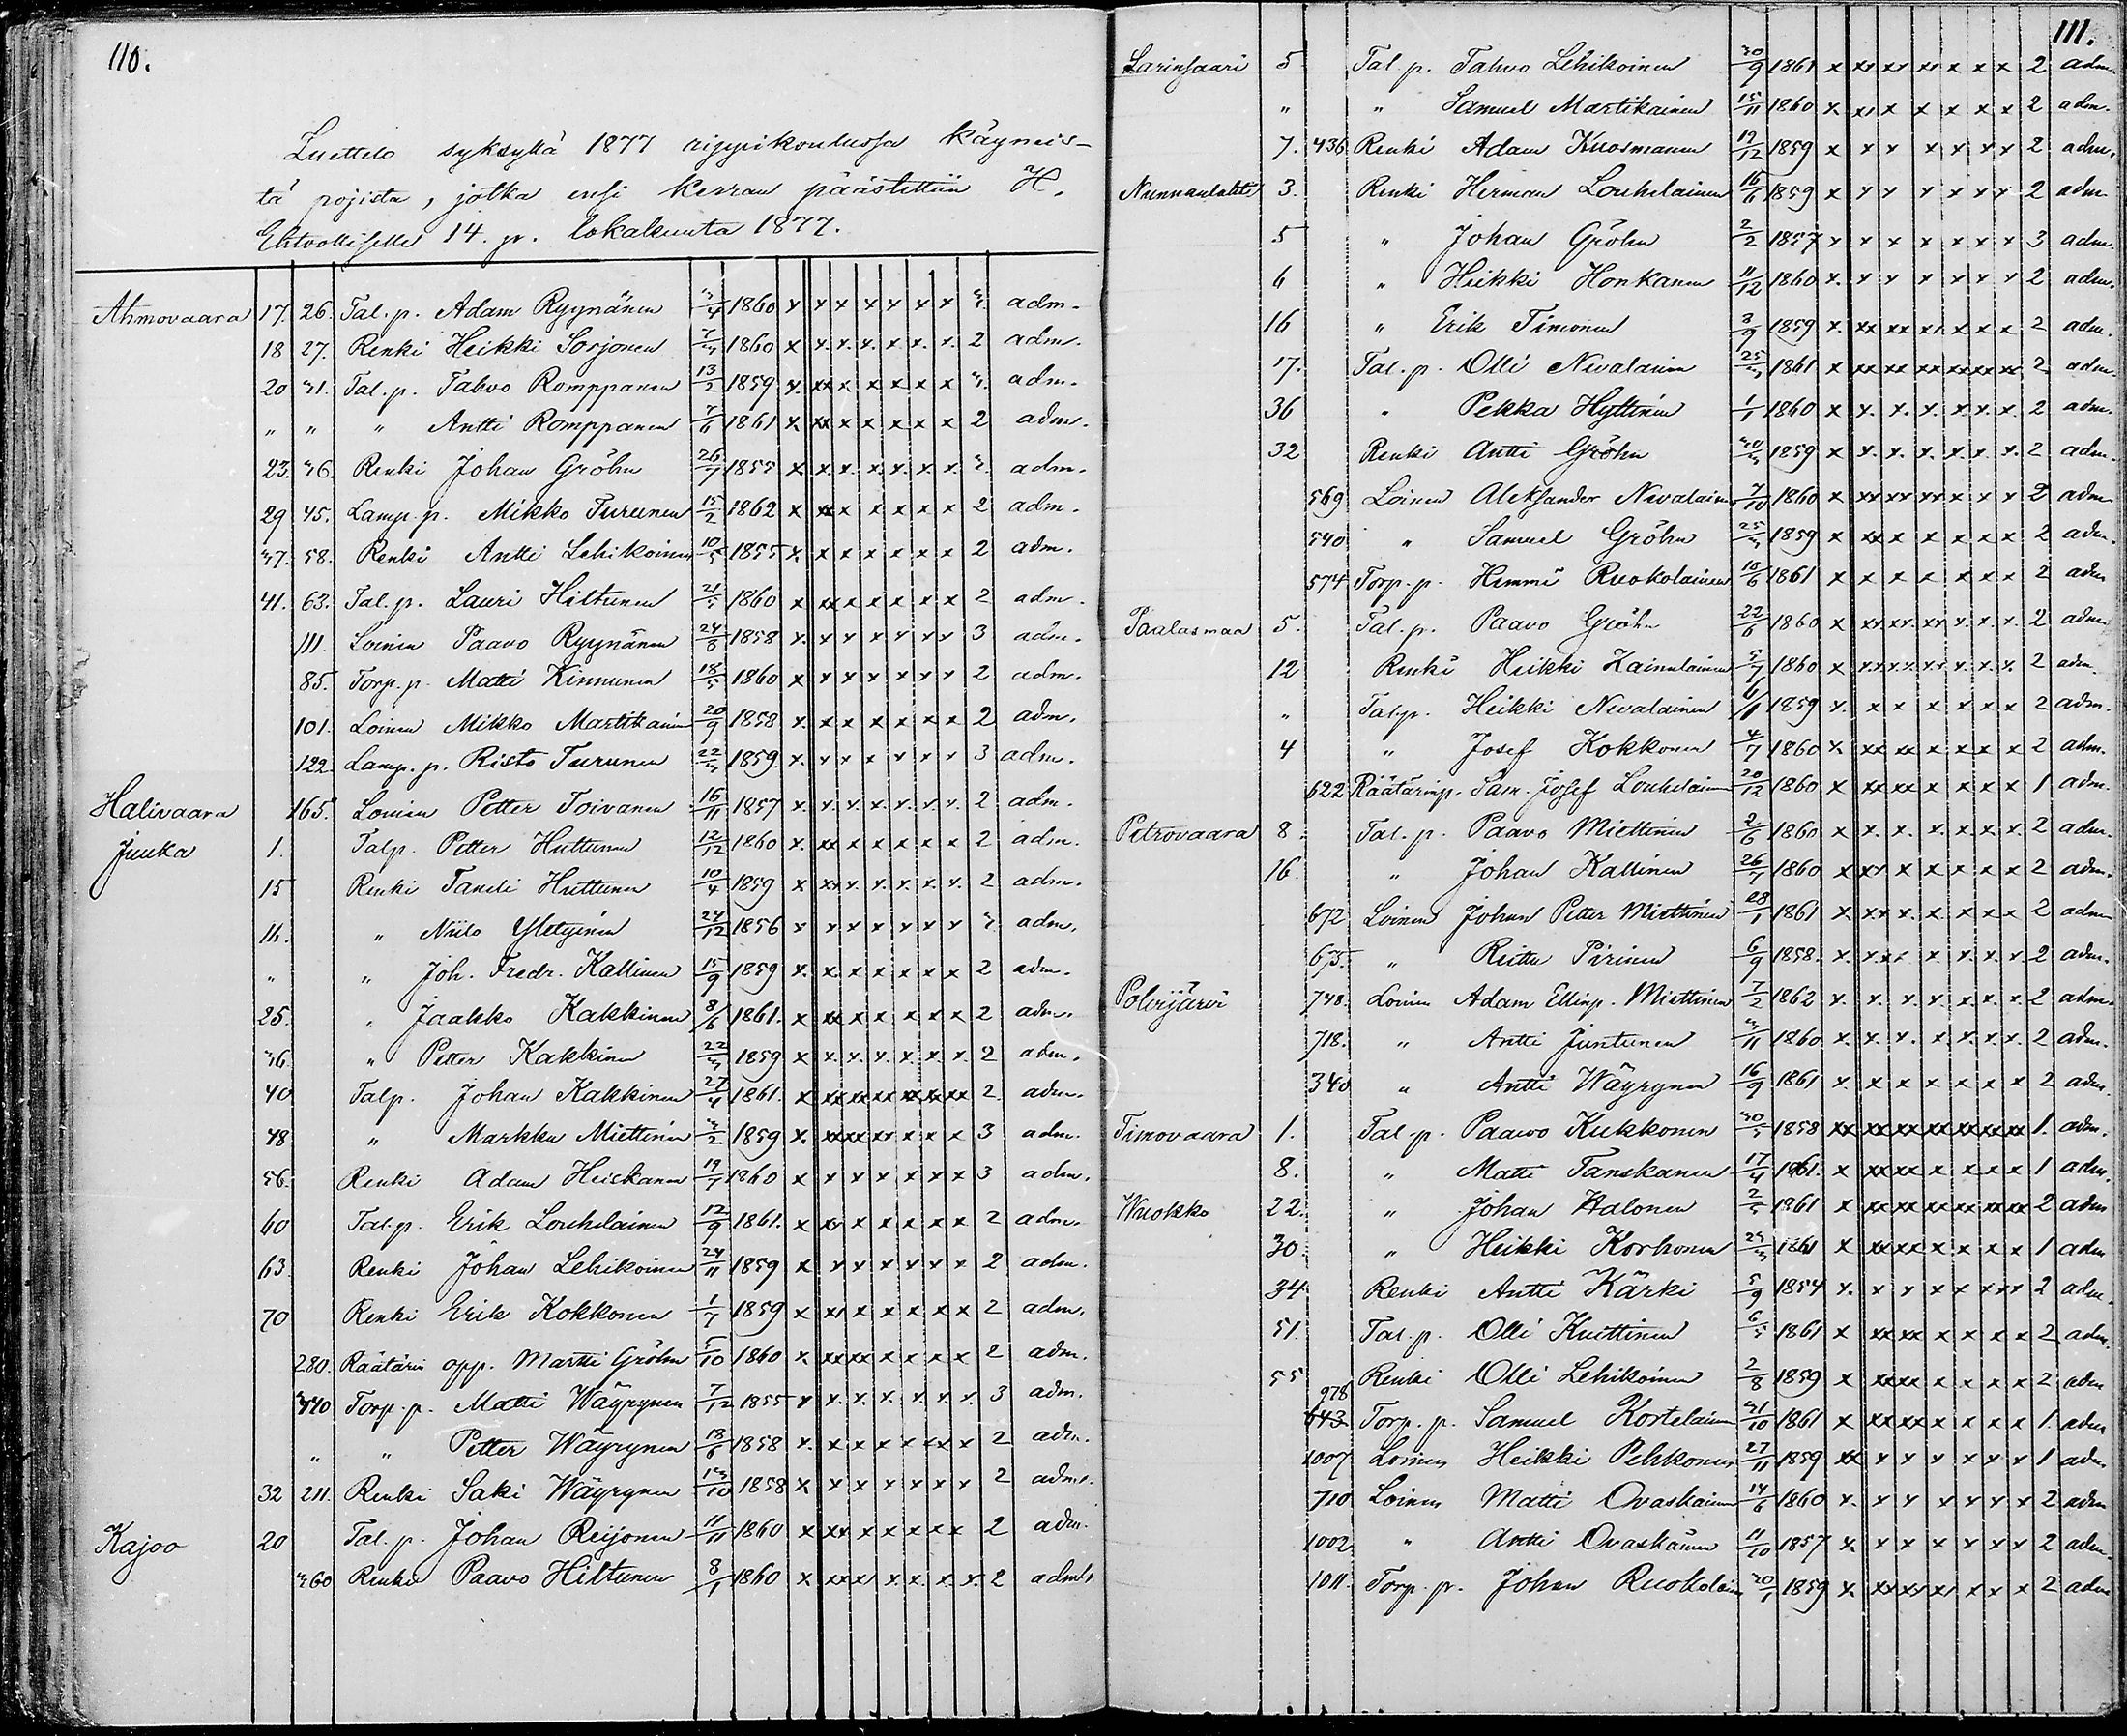 110.
Luettelo syksyllä 1877 rippikoulussa käyneis-
tä pojista, jotka ensi kerran päästettiin H.
Ehtoolliselle 14. p. lokakuuta 1877.
Ahmovaara 17. 26. Tal. p. Adam Ryynänen 3/4 1860 x x x x x x x 3. adm.
18 27. Renki Heikki Sorjonen 7/3 1860 x x. x. x. x. x. x. 2 adm.
20 31. Tal. p. Tahvo Romppanen 13/2 1859 x. xx x x x x x 3. adm.
" " " Antti Romppanen 7/6 1861 x. xx x x x x x 2 adm.
23. 36. Renki Johan Gröhn 26/7 1855 x. x. x. x. x. x. x. 3. adm.
29 45. Lamp. p. Mikko Turunen 15/2 1862 x xx x x x x x 2 adm.
37. 58. Renki Antti Lehikoinen 10/5 1855 x. x x x x x x 2 adm.
41. 63. Tal. p. Lauri Hiltunen 21/5 1860 x xx x x x x x 2 adm.
111. Loinen Paavo Ryynänen 24/8 1858 x. x x x x x x 3 adm.
85. Torp. p. Matti Kinnunen 18/5 1860 x x x x x x x 2 adm.
101. Loinen Mikko Martikainen 20/9 1858 x. x x x x x x 2 adm.
122. Lamp. p. Risto Turunen 22/3 1859. x. x x x x x x 3 adm.
Halivaara 165. Loinen Petter Toivanen 16/11 1857 x. x. x. x. x. x. x. 2 adm.
Juuka 1. Talp. Petter Huttunen 12/12 1860 x. xx x x x x x 2 adm.
15 Renki Taneli Huttunen 10/4 1859 x xx x. x. x. x. x. 2 adm.
14. " Niilo Yletyinen 24/12 1856 x x x x x x x 3 adm.
" " Joh. Fredr. Kallinen 15/9 1859 x. x x x x x x 2 adm.
25. " Jaakko Kakkinen 8/6 1861. x xx x x x x x 2 adm.
36. " Petter Kakkinen 22/3 1859 x x. x. x. x. x. x. 2 adm.
40 Talp. Johan Kakkinen 27/4 1861. x xx xx xx xx xx xx 2. adm.
48 " Markku Miettinen 3/2 1859 x. xx xx xx x x x 3 adm.
56. Renki Adam Heiskanen 19/7 1860 x x x x x x x 3 adm.
60 Tal.p. Erik Louhelainen 12/9 1861. x xx x x x x x 2 adm.
63 Renki Johan Lehikoinen 24/11 1859 x x x x x x x 2 adm.
70 Renki Erik Kokkonen 1/7 1859 x xx x x x x x 2 adm.
280. Räätärin opp. Martti Gröhn 5/10 1860 x. xx xx x x x x 2 adm.
340 Torp. p. Matti Wäyrynen 7/12 1855 x x. x. x. x. x. x. 3 adm.
" " Petter Wäyrynen 18/6 1858 x. x x x x x x 2 adm.
32 211. Renki Saki Wäyrynen 13/10 1858 x x x x x x x 2 adm.
Kajoo 20 Tal. p. Johan Reijonen 11/11 1860 x xx x x x x x 2 adm.
360 Renki Paavo Hiltunen 8/1 1860 x xx x x. x. x. x. 2 adm.
111.
Larinsaari 5 Tal. p. Tahvo Lehikoinen 30/9 1861 x xx xx xx x x x 2 adm.
" " Samuel Martikainen 15/11 1860 x xx x x x x x 2 adm.
7. 436 Renki Adam Kuosmanen 19/12 1859 x x x x x x x 2 adm.
Nunnanlahti 3. Renki Herman Louhelainen 16/6 1859 x x x x x x x 2 adm
5 " Johan Gröhn 2/2 1857 x x x x x x x 3 adm.
6 " Heikki Honkanen 11/12 1860 x. x x x x x x 2 adm.
16 " Erik Timonen 3/9 1859 x. xx xx xx x x x 2 adm.
17. Tal. p. Olli Nevalainen 25/3 1861 x xx xx xx xx xx xx 2 adm.
36 " Pekka Hyttinen 1/1 1860 x x. x. x. x. x. x. 2 adm.
32 Renki Antti Gröhn 30/3 1859 x x. x. x. x. x. x. 2 adm.
569 Loinen Aleksander Nevalainen 7/10 1860 x xx xx xx x x x 2 adm
540 " Samuel Gröhn 25/3 1859 x xx x x x x x 2 adm.
574 Torp. p. Hemmi Ruokolainen 10/6 1861 x x x x x x x 2 adm
Paalasmaa 5. Tal. p. Paavo Gröhn 22/6 1860 x xx xx. xx x. x. x. 2 adm
12 Renki Heikki Kainulainen 5/7 1860 x x.x. x.x. x.x. x. x. x. 2 adm.
" Talp. Heikki Nevalainen 6/1 1859 x. x x x x x x 2 adm.
4 " Josef Kokkonen 4/7 1860 x. xx xx x x x x 2 adm.
622 Räätärinp. Sam. Josef Louhelainen 20/12 1860 x xx xx x x x x 1 adm.
Petrovaara 8. Tal. p. Paavo Miettinen 2/6 1860 x x. x. x. x. x. x. 2 adm.
16. " Johan Kallinen 26/7 1860 x xx x x x x x 2 adm.
672 Loinen Johan Petter Miettinen 28/1 1861 x xx x. x. x x x 2 adm
675. " Reitu Pirinen 6/9 1858. x. x.x x. x. x. x. x 2 adm.
Polvijärvi 748. Loinen Adam Ellinp. Miettinen 7/2 1862 x. x. x. x. x. x. x. 2 adm.
718. " Antti Juntunen 3/11 1860 x. x. x. x. x. x. x. 2 adm.
340 " Antti Wäyrynen 16/9 1861 x. x x x x x x 2 adm.
Timovaara 1. Tal. p. Paavo Kukkonen 30/5 1858 xx xx xx xx xx xx xx 1. adm.
8. " Matti Tanskanen 17/4 1861. x xx xx x x x x 1 adm.
Wuokko 22. " Johan Halonen 2/5 1861 x xx xx xx xx xx xx 2 adm
30. " Heikki Korhonen 25/3 1861 x xx xx x x x x 1 adm
34 Renki Antti Kärki 5/9 1854 x. x x x x x x 2 adm.
51. Tal. p. Olli Kuittinen 6/5 1861 x xx xx x x x x 2 adm.
55 Renki Olli Lehikoinen 2/8 1859 x xx xx x x x x 2 adm
978
643 Torp. p. Samuel Kortelainen 31/10 1861 x xx xx x x x x 1. adm
1007 Loinen Heikki Pehkonen 27/11 1859 xx x x x x x x 1 adm
710 Loinen Matti Ovaskainen 14/6 1860 x. x x x x x x 2 adm
1002 " Antti Ovaskainen 11/10 1857 x. x x x x x x 2 adm.
1011. Torp. p. Johan Ruokolain 30/1 1859 x. xx xx xx x x x 2 adm